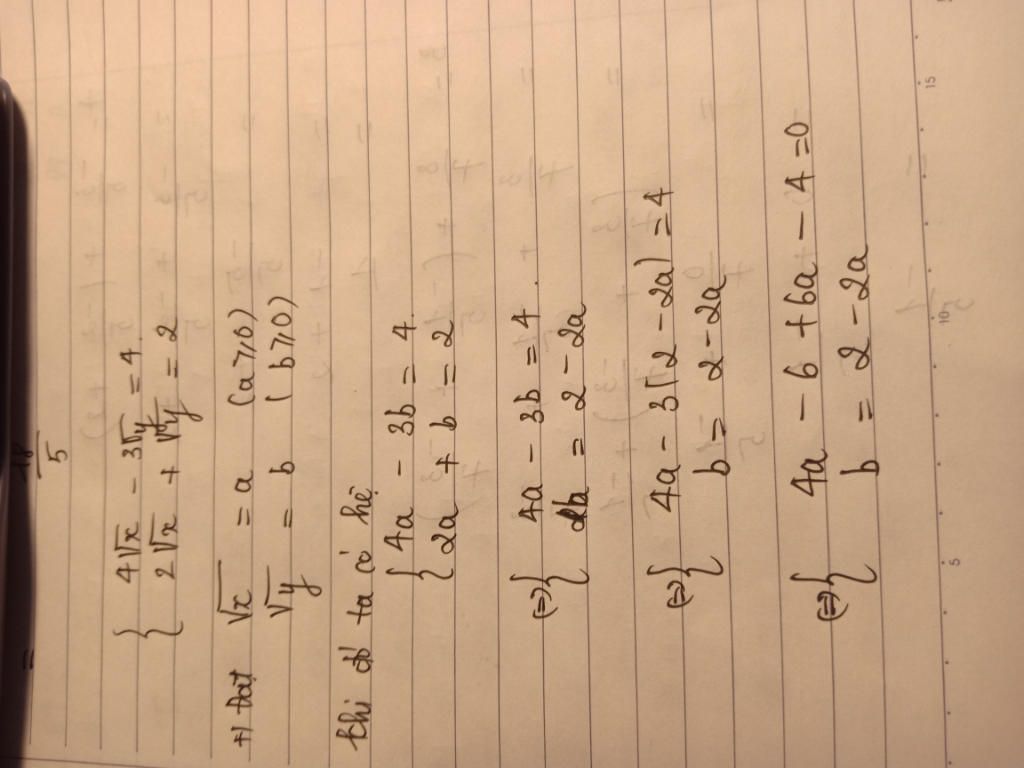 =
18
5
{ 4√x - 3√y = 4
2√x + √y = 2
+) Đặt √x = a (a ≥ 0)
√y = b ( b ≥ 0)
Khi đó ta có hệ
{ 4a - 3b = 4
2a + b = 2
(=) { 4a - 3b = 4
b = 2 - 2a
(=) { 4a - 3(2 - 2a) = 4
b = 2 - 2a
(=) { 4a - 6 + 6a - 4 = 0
b = 2 - 2a
5
10
15